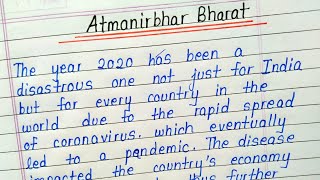 Atmanirbhar Bharat
The year 2020 has been a
disastrous one not just for India
but for every country in the
world due to the rapid spread
of coronavirus. which eventually
led to a pandemic. The disease
impacted the country's economy
thus further